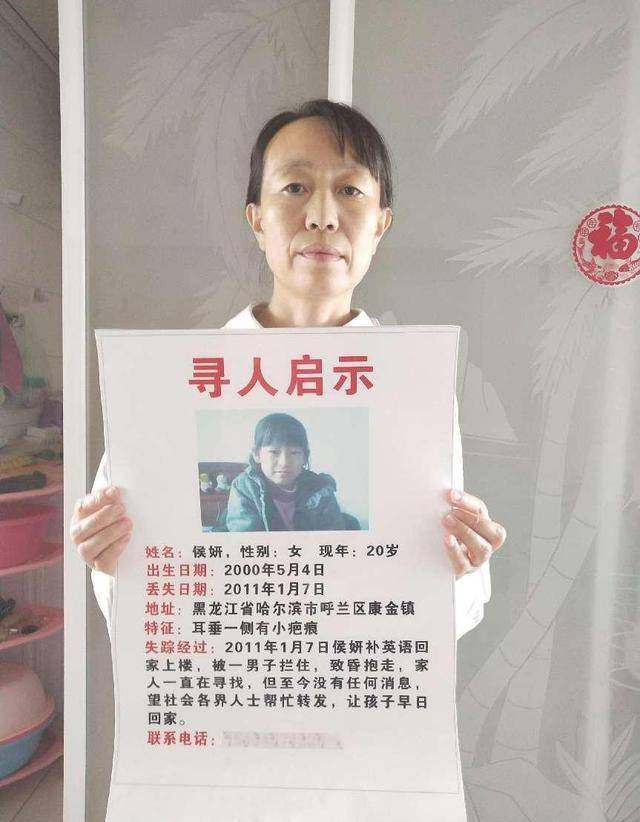 寻人启示
姓名：侯妍，性别：女 现年：20岁
出生日期：2000年5月4日
丢失日期：2011年1月7日
地址：黑龙江省哈尔滨市呼兰区康金镇
特征：耳垂一侧有小疤痕
失踪经过：2011年1月7日侯妍补英语回
家上楼，被一男子拦住，致昏抱走，家
人一直在寻找，但至今没有任何消息，
望社会各界人士帮忙转发，让孩子早日
回家。
联系电话：
福